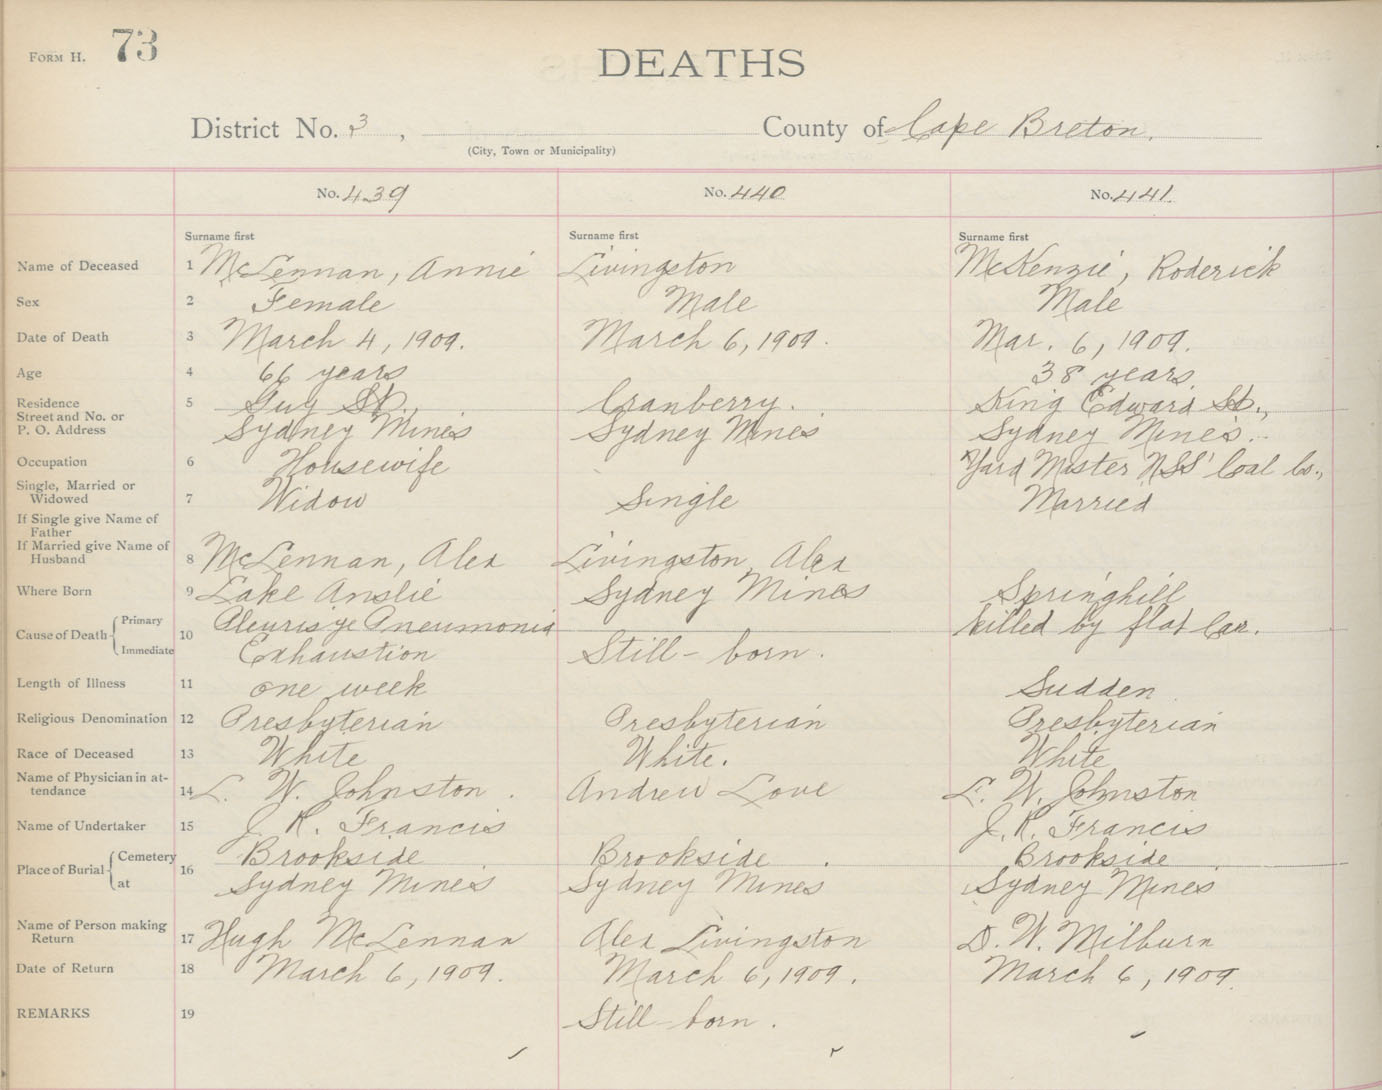 FORM H. 73
DEATHS
District No. 3, County of Cape Breton.
(City, Town or Municipality)
No. 439 No. 440 No. 441.
Surname first Surname first Surname first
Name of Deceased 1 McLennan, Annie Livingston McKenzie, Roderick
Sex 2 Female Male Male
Date of Death 3 March 4, 1909. March 6, 1909. Mar. 6, 1909.
Age 4 66 years 38 years
Residence 5 Guy St., Cranberry. King Edward St.,
Street and No. or
P. O. Address Sydney Mines Sydney Mines Sydney Mines.
Occupation 6 Housewife Yard Master NSS' Coal Co.,
Single, Married or
Widowed 7 Widow Single Married
If Single give Name of
Father
If Married give Name of
Husband 8 McLennan, Alex Livingston, Alex
Where Born 9 Lake Anslie Sydney Mines Springhill
Cause of Death { Primary Pleurisye Pneumonia killed by flat Car.
Immediate 10 Exhaustion Still-born.
Length of Illness 11 one week Sudden
Religious Denomination 12 Presbyterian Presbyterian Presbyterian
Race of Deceased 13 White White. White
Name of Physician in at-
tendance 14 L. W. Johnston. Andrew Love L. W. Johnston
Name of Undertaker 15 J. R. Francis J. R. Francis
Place of Burial { Cemetery Brookside Brookside. Brookside
at 16 Sydney Mines Sydney Mines Sydney Mines
Name of Person making
Return 17 Hugh McLennan Alex Livingston D. W. Milburn
Date of Return 18 March 6, 1909. March 6, 1909. March 6, 1909.
REMARKS 19 Still-born.